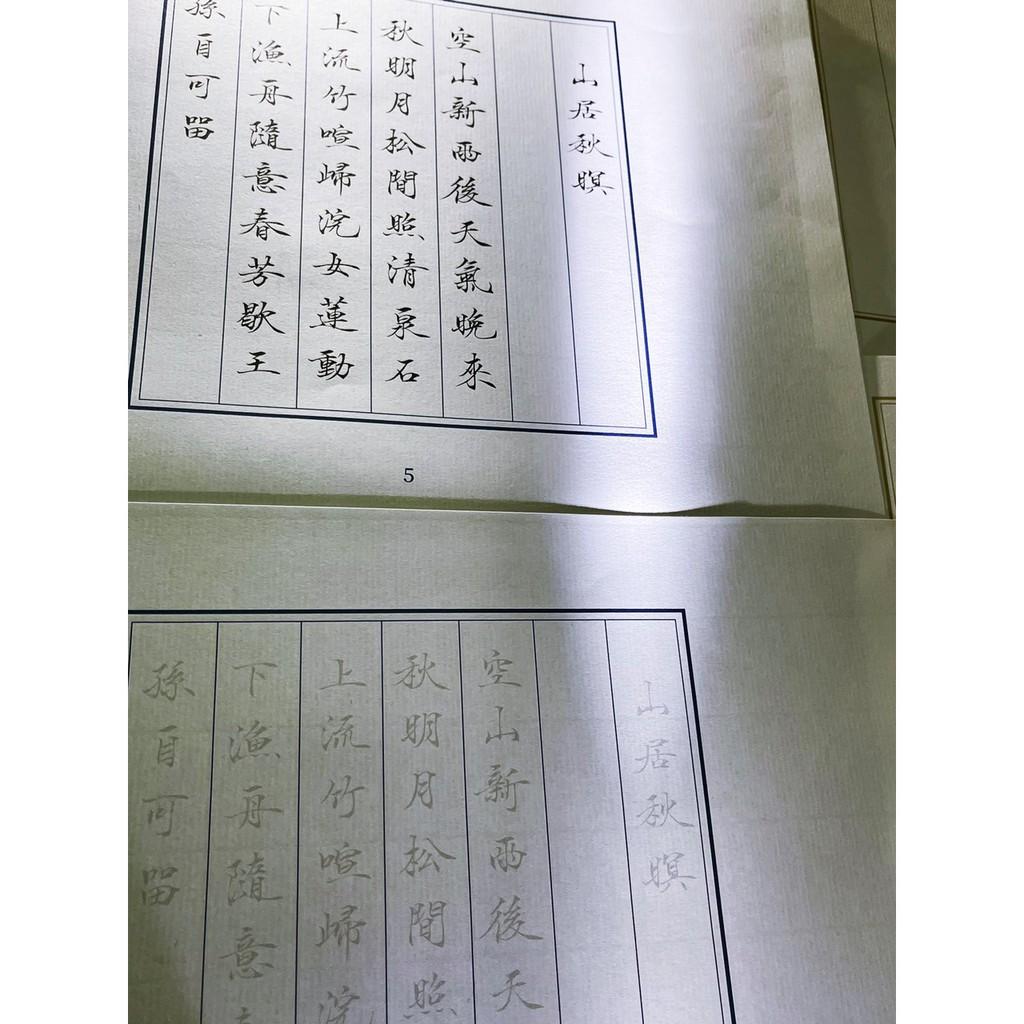 山居秋暝
空山新雨後天氣晚來
秋明月松間照清泉石
上流竹喧歸浣女蓮動
下漁舟隨意春芳歇王
孫自可留
5
山居秋暝
空山新雨後天
秋明月松間照
上流竹喧歸浣
下漁舟隨意
孫自可留